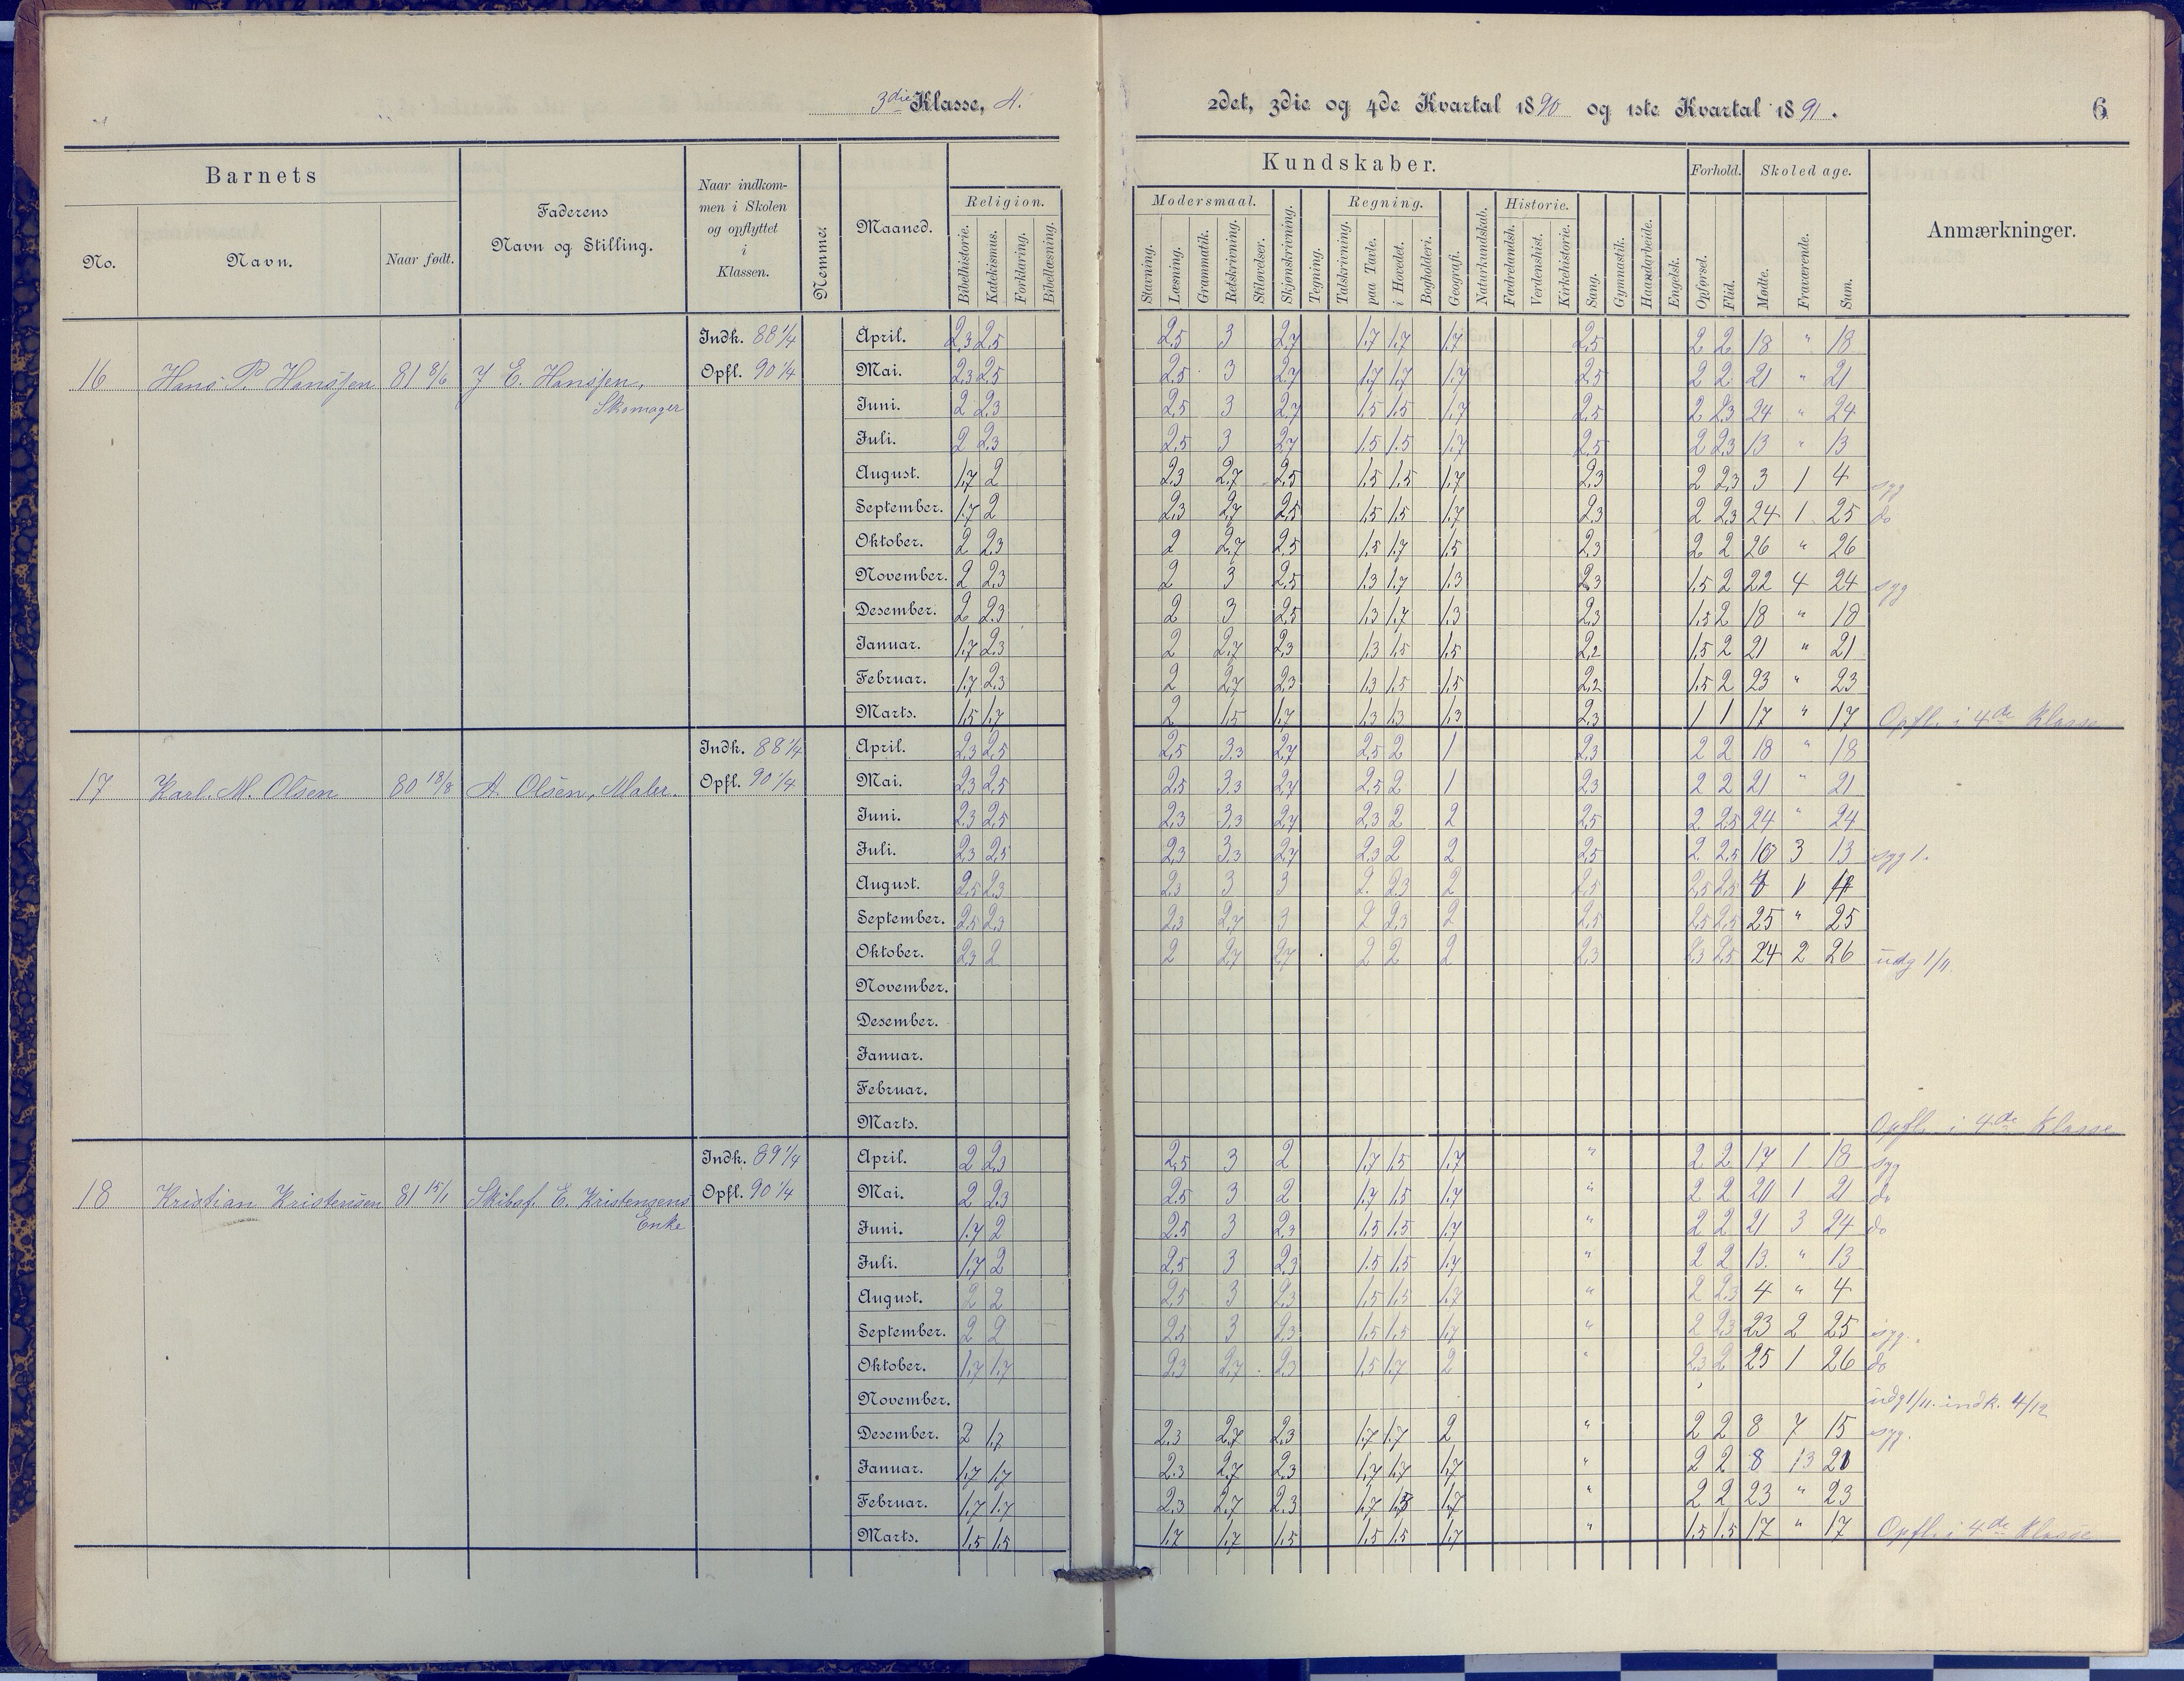 3die Klasse, A.
2det, 3die og 4de Kvartal 1890 og 1ste Kvartal 1891. 6
Barnets
No. Navn. Naar født.
Faderens Navn og Stilling.
Naar indkommen i Skolen og opflyttet i Klassen.
Nemme.
Maaned.
Kundskaber.
Religion.
Bibelhistorie. Katekismus. Forklaring. Bibellæsning.
Modersmaal.
Stavning. Læsning. Grammatik. Retskrivning. Stiløvelser.
Skjønskrivning. Tegning.
Regning.
Talskrivning. paa Tavle. i Hovedet. Bogholderi.
Geografi. Naturkundskab.
Historie.
Fædrelandsh. Verdenshist. Kirkehistorie.
Sang. Gymnastik. Haandarbeide. Engelsk.
Forhold.
Opførsel. Flid.
Skoledage.
Mødte. Fraværende. Sum.
Anmærkninger.
16 Hans P. Hanssen 81 8/6 J E. Hanssen, Skomager
Indk. 88 1/4
Opfl. 90 1/4
April. 2,3 2,5 2,5 3 2,7 1,7 1,7 1,7 2,5 2 2 18 " 18
Mai. 2,3 2,5 2,5 3 2,7 1,7 1,7 1,7 2,5 2 2 21 " 21
Juni. 2 2,3 2,5 3 2,7 1,5 1,5 1,7 2,5 2 2,3 24 " 24
Juli. 2 2,3 2,5 3 2,7 1,5 1,5 1,7 2,5 2 2,3 13 " 13
August. 1,7 2 2,3 2,7 2,5 1,5 1,5 1,7 2,3 2 2,3 3 1 4 syg
September. 1,7 2 2,3 2,7 2,5 1,5 1,5 1,7 2,3 2 2,3 24 1 25 do
Oktober. 2 2,3 2 2,7 2,5 1,5 1,7 1,5 2,3 2 2 26 " 26
November. 2 2,3 2 3 2,5 1,3 1,7 1,3 2,3 1,5 2 22 4 24 syg
Desember. 2 2,3 2 3 2,5 1,3 1,7 1,3 2,3 1,5 2 18 " 18
Januar. 1,7 2,3 2 2,7 2,3 1,3 1,5 1,5 2,2 1,5 2 21 " 21
Februar. 1,7 2,3 2 2,7 2,3 1,3 1,5 1,5 2,2 1,5 2 23 " 23
Marts. 1,5 1,7 2 1,5 1,7 1,3 1,3 1,3 2,3 1 1 17 " 17 Opfl. i 4de Klasse
17 Karl. M. Olsen 80 18/8 A. Olsen, Maler.
Indk. 88 1/4
Opfl. 90 1/4
April. 2,3 2,5 2,5 3,3 2,7 2,5 2 1 2,3 2 2 18 " 18
Mai. 2,3 2,5 2,5 3,3 2,7 2,5 2 1 2,3 2 2 21 " 21
Juni. 2,3 2,5 2,3 3,3 2,7 2,3 2 2 2,5 2 2,5 24 " 24
Juli. 2,3 2,5 2,3 3,3 2,7 2,3 2 2 2,5 2 2,5 10 3 13 syg 1.
August. 2,5 2,3 2,3 3 3 2 2,3 2 2,5 2,5 2,5
September. 2,5 2,3 2,3 2,7 3 2 2,3 2 2,5 2,5 2,5 25 " 25
Oktober. 2,3 2 2 2,7 2,7 2 2 2 2,3 2,3 2,5 24 2 26 udg 1/11.
November.
Desember.
Januar.
Februar.
Marts. Opfl. i 4de Klasse
18 Kristian Kristensen 81 15/1 Skibsf. E. Kristensens Enke
Indk. 89 1/4
Opfl. 90 1/4
April. 2 2,3 2,5 3 2 1,7 1,5 1,7 " 2 2 17 1 18 syg
Mai. 2 2,3 2,5 3 2 1,7 1,5 1,7 " 2 2 20 1 21 do
Juni. 1,7 2 2,5 3 2,3 1,5 1,5 1,7 " 2 2 21 3 24 do
Juli. 1,7 2 2,5 3 2,3 1,5 1,5 1,7 " 2 2 13. " 13
August. 2 2 2,5 3 2,3 1,5 1,5 1,7 " 2 2,3 4 " 4
September. 2 2 2,5 3 2,3 1,5 1,5 1,7 " 2 2,3 23 2 25 syg.
Oktober. 1,7 1,7 2,3 2,7 2,3 1,5 1,7 2 " 2,3 2 25 1 26 do
November. udg 1/11. indk. 4/12
Desember. 2 1,7 2,3 2,7 2,3 1,7 1,7 2 " 2 2 8 7 15 syg.
Januar. 1,7 1,7 2,3 2,7 2,3 1,7 1,7 1,7 " 2 2 8 13 21
Februar. 1,7 1,7 2,3 2,7 2,3 1,7 1,7 " 2 2 23 " 23
Marts. 1,5 1,5 1,7 1,7 1,5 1,5 1,5 1,7 " 1,5 1,5 17 " 17 Opfl. i 4de Klasse